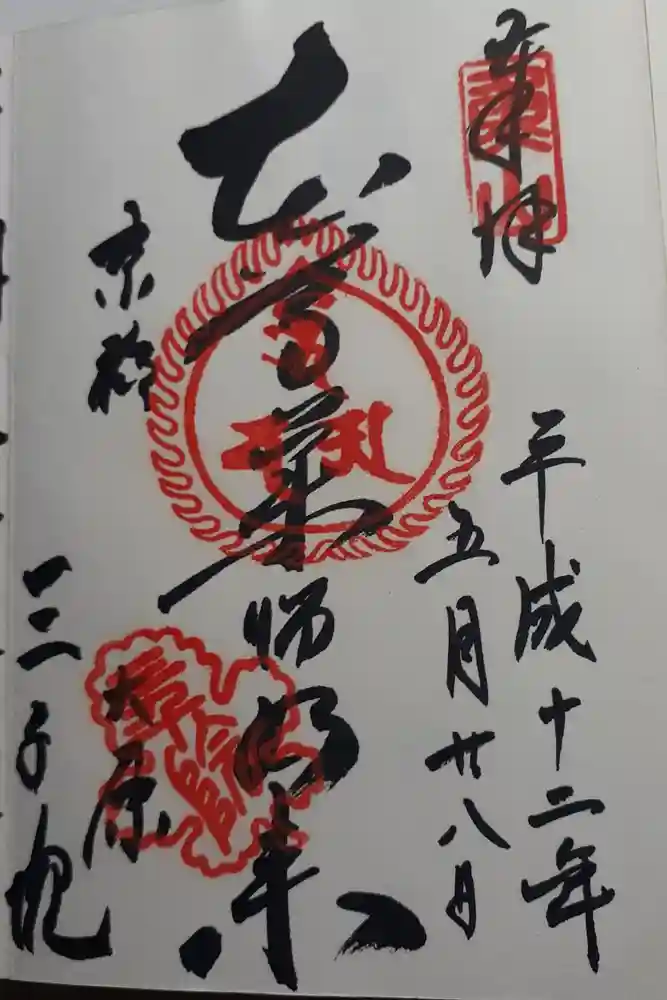 奉拝
平成十二年
五月廿八日
薬師如来
京都
大原
三千院